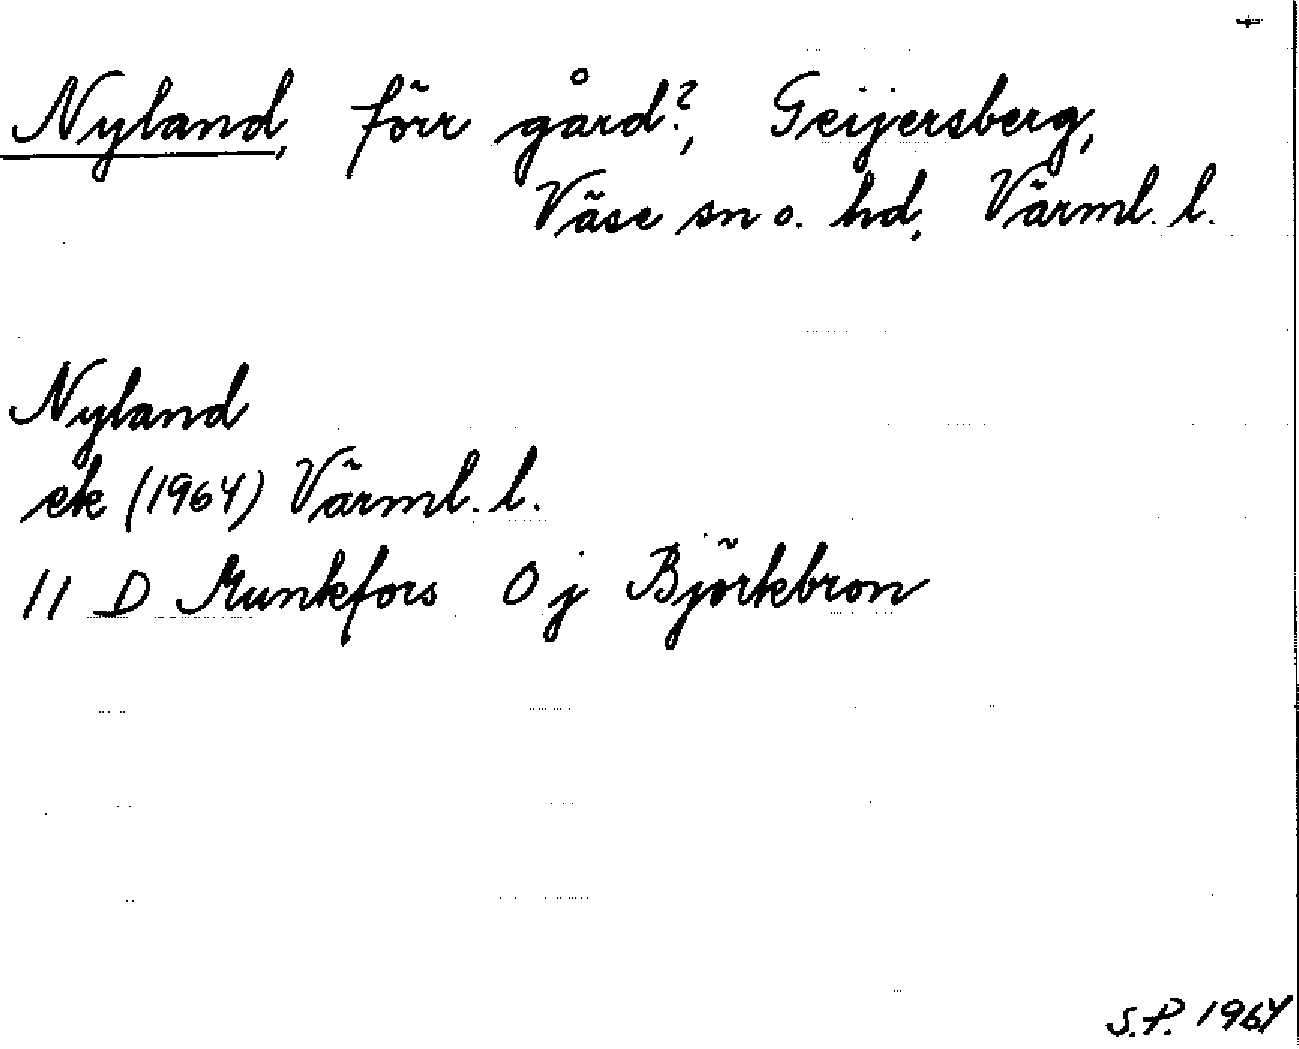 Nyland, förr gård?, Geijersberg,
Väse sn o. hd, Värml. l.
Nyland
ek (1964) Värml. l.
11 D Munkfors 0 j Björkbron
S.P. 1964